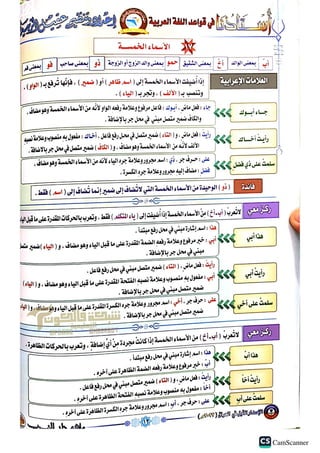 في قواعد اللغة العربية
الأسماء الخمسة
أبٌ بمعنى الوالد
أخ بمعنى الشقيق
حمو بمعنى والد الزوج أو الزوجة
ذو بمعنى صاحب
فو بمعنى فم
العلامات الإعرابية
إذا أضيفت الأسماء الخمسة إلى ( اسم ظاهر ) أو ( ضمير ) ، فإنها ترفع بـ ( الواو ) ،
وتنصب بـ ( الألف ) وتجر بـ ( الياء ) .
جاء أبوك
جاء : فعل ماض . أبوك : فاعل مرفوع وعلامة رفعه الواو لأنه من الأسماء الخمسة وهو مضاف ،
والكاف ضمير متصل مبني في محل جر بالإضافة .
رأيت أخاك
رأيت : فعل ماض ، و ( التاء ) ضمير متصل في محل رفع فاعل . أخاك : مفعول به منصوب وعلامة نصبه
الألف لأنه من الأسماء الخمسة وهو مضاف ، و ( الكاف ) ضمير متصل مبني في محل جر بالإضافة .
سلمت على ذي فضل
على : حرف جر ، ذي : اسم مجرور وعلامة جره الياء لأنه من الأسماء الخمسة وهو مضاف .
فضل : مضاف إليه مجرور وعلامة جره الكسرة .
فائدة
( ذو ) الوحيدة من الأسماء الخمسة التي لا تضاف إلى ضمير إنما تضاف إلى ( اسم ) فقط .
ركز معي
لا تعرب ( أب ، أخ ) من الأسماء الخمسة إذا أضيفت إلى ( ياء المتكلم ) فقط ، وتعرب بالحركات المقدرة على ما قبل
هذا أبي
هذا : اسم إشارة مبني في محل رفع مبتدأ .
أبي : خبر مرفوع وعلامة رفعه الضمة المقدرة على ما قبل الياء وهو مضاف ، و ( الياء ) ضمير
مبني في محل جر بالإضافة .
رأيت أبي
رأيت : فعل ماض ، ( التاء ) ضمير متصل مبني في محل رفع فاعل .
أبي : مفعول به منصوب وعلامة نصبه الفتحة المقدرة على ما قبل الياء وهو مضاف ، و ( الياء )
ضمير متصل مبني في محل جر بالإضافة .
سلمت على أخي
على : حرف جر . أخي : اسم مجرور وعلامة جره الكسرة المقدرة على ما قبل الياء وهو مضاف ، و ( الياء )
ضمير متصل مبني في محل جر بالإضافة .
ركز معي
لا تعرب ( أب ، أخ ) من الأسماء الخمسة إذا كانت مجردة من أي إضافة ، وتعرب بالحركات الظاهرة .
هذا أبٌ
هذا : اسم إشارة مبني في محل رفع مبتدأ .
أبٌ : خبر مرفوع وعلامة رفعه الضمة الظاهرة على آخره .
رأيت أخاً
رأيت : فعل ماض ، و ( التاء ) ضمير متصل مبني في محل رفع فاعل .
أخاً : مفعول به منصوب وعلامة نصبه الفتحة الظاهرة على آخره .
سلمت على أب
على : حرف جر ، أب : اسم مجرور وعلامة جره الكسرة الظاهرة على آخره .
CS CamScanner